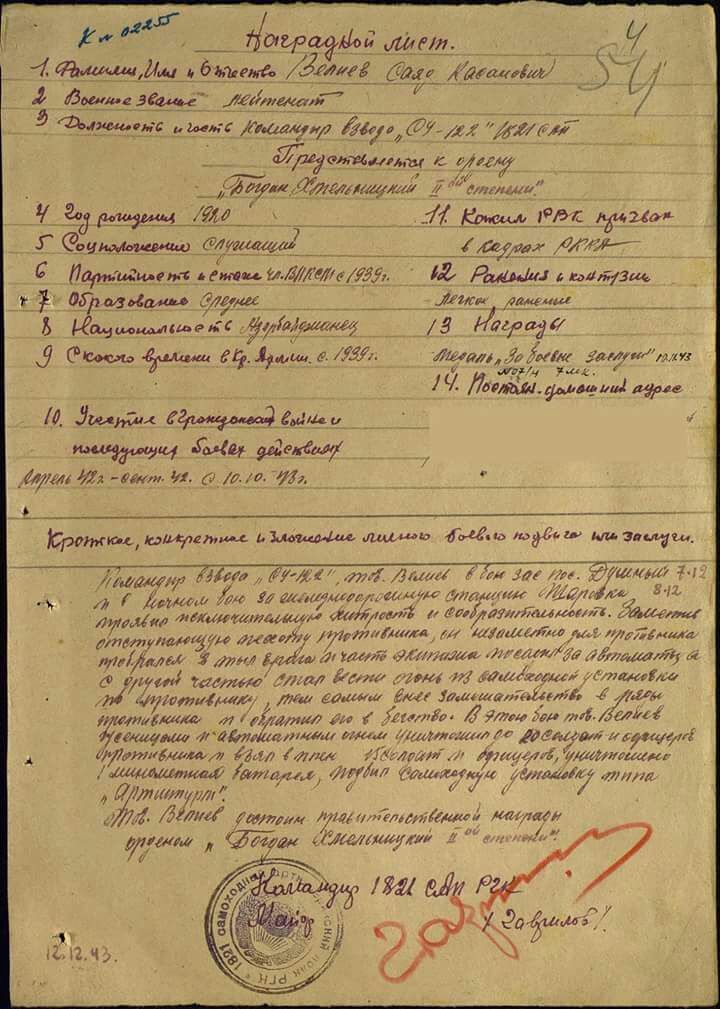 К № 02255
4
54
Наградной лист.
1. Фамилия, Имя и Отчество Велиев Саяд Кадапович
2 Военное звание лейтенат
3 Должность и часть Командир взвода „СУ-122" 1821 САП
Представляется к ордену
„Богдан Хмельницкий II ой степени".
4 Год рождения 1920
5 Соцположение служащий
6 Партитность и стаж чл. ВЛКСМ с 1939г.
7 Образование Среднее
8 Национальность Азербайджанец
9 С какого времени в Кр. Армии с 1939г.
10. Участие в гражданской войне и
последующих боевых действиях
Апрель 42г. - сент. 42. с 10.10.43г.
11. Каким РВК призван
в кадрах РККА
12 Ранения и контузии
Легкое ранение
13 Награды
Медаль „За боевые заслуги" 43
14. Постоян. домашний адрес
Краткое, конкретное изложение личного боевого подвига или заслуги.
Командир взвода „СУ-122", тов. Велиев в бою за нас. пос. 7.12
и в ночном бою за железнодорожную станцию Шаровка 8.12
проявил исключительную хитрость и сообразительность. Заметив
отступающую пехоту противника, он незаметно для противника
пробрался в тыл врага и часть экипажа послал за автоматы, а
с другой частью стал вести огонь из самоходной установки
по противнику, тем самым внес замешательство в ряды
противника и обратил его в бегство. В этом бою тов. Велиев
гусеницами и автоматным огнем уничтожил до 20 солдат и офицеров
противника и взял в плен 15 солдат и офицеров, уничтожено
1 минометная батарея, подбил самоходную установку типа
„Артштурм".
Тов. Велиев достоин правительственной награды
орденом „Богдан Хмельницкий II ой степени".
Командир 1821 САП РГК
Майор / Гаврилов /.
Гаврилов
1821 самоходный артиллерийский полк РГК
12.12.43.